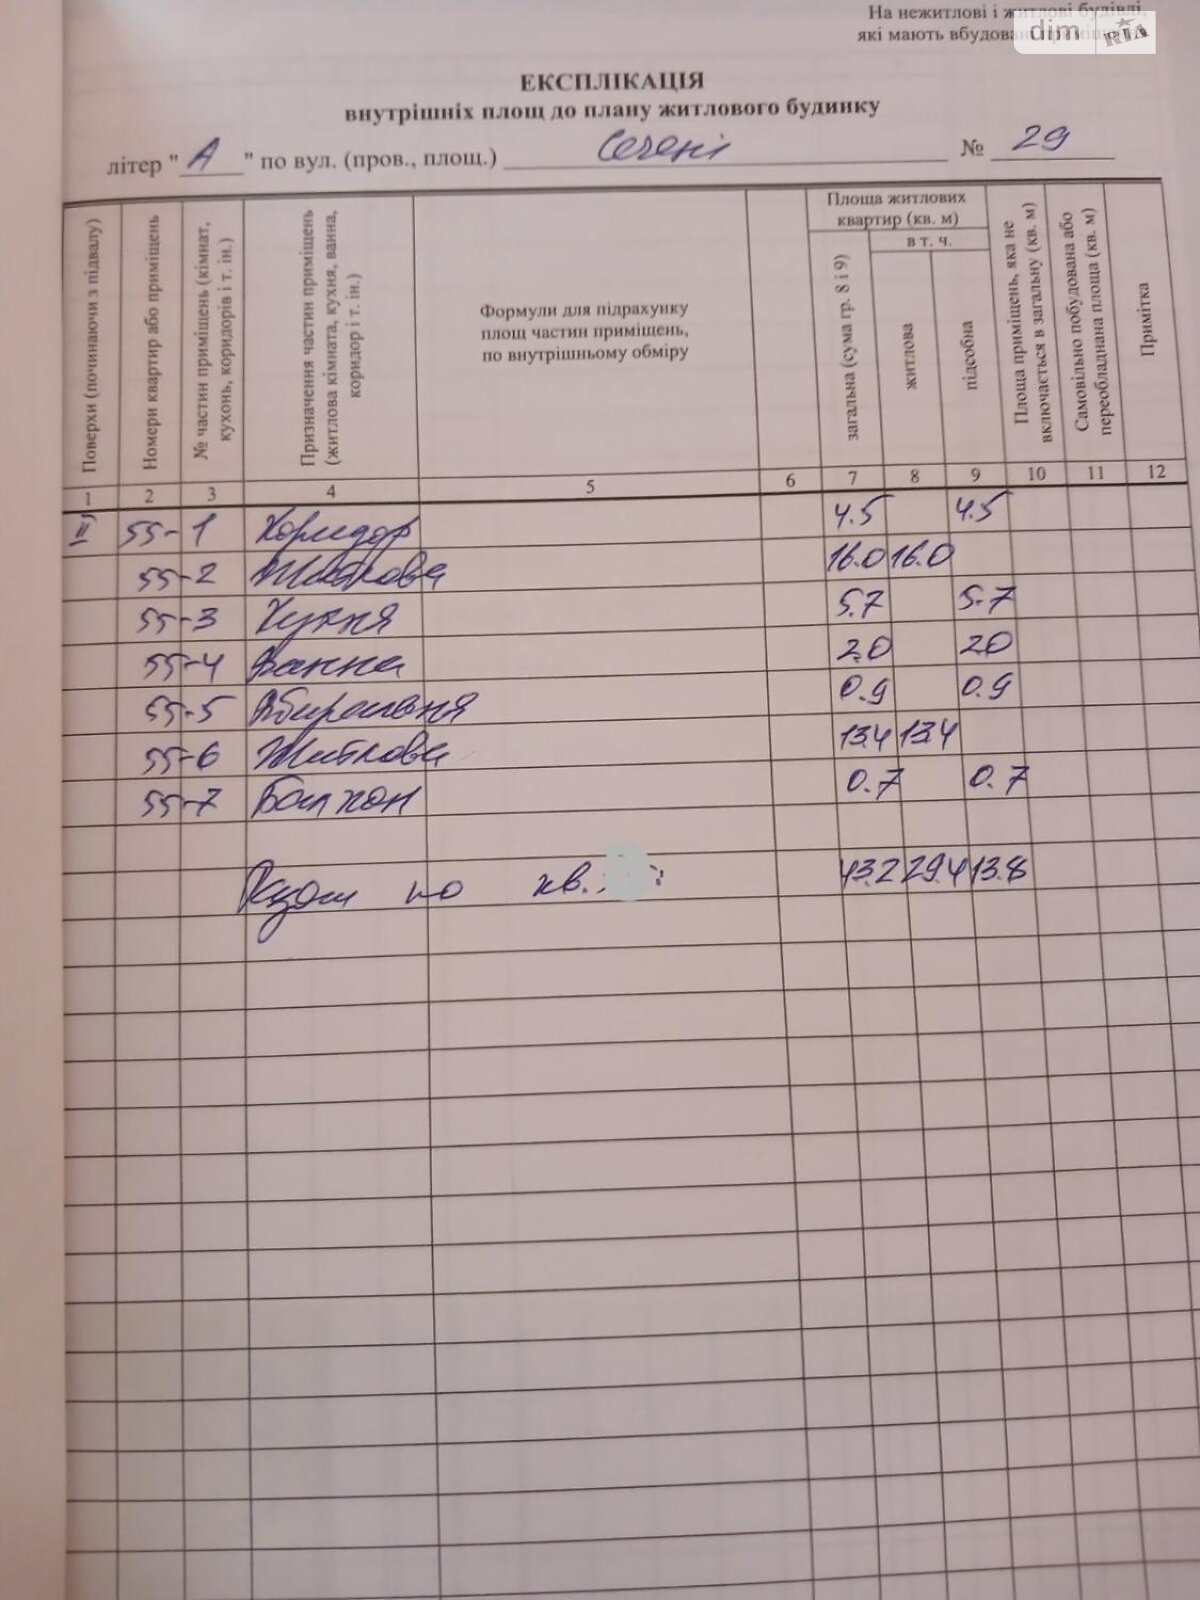 На нежитлові і житлові будівлі,
які мають вбудовані
dim RIA
ЕКСПЛІКАЦІЯ
внутрішніх площ до плану житлового будинку
літер " А " по вул. (пров., площ.) Сечені № 29
Поверхи (починаючи з підвалу)
Номери квартир або приміщень
№ частин приміщень (кімнат,
кухонь, коридорів і т. ін.)
Призначення частин приміщень
(житлова кімната, кухня, ванна,
коридор і т. ін.)
Формули для підрахунку
площ частин приміщень,
по внутрішньому обміру
Площа житлових
квартир (кв. м)
загальна (сума гр. 8 і 9)
в т. ч.
житлова
підсобна
Площа приміщень, яка не
включається в загальну (кв. м)
Самовільно побудована або
переобладнана площа (кв. м)
Примітка
1 2 3 4 5 6 7 8 9 10 11 12
ІІ 55-1 Коридор 4.5 4.5
55-2 Житлова 16.0 16.0
55-3 Кухня 5.7 5.7
55-4 Ванна 2.0 2.0
55-5 Вбиральня 0.9 0.9
55-6 Житлова 13.4 13.4
55-7 Балкон 0.7 0.7
по кв. : 43.2 29.4 13.8